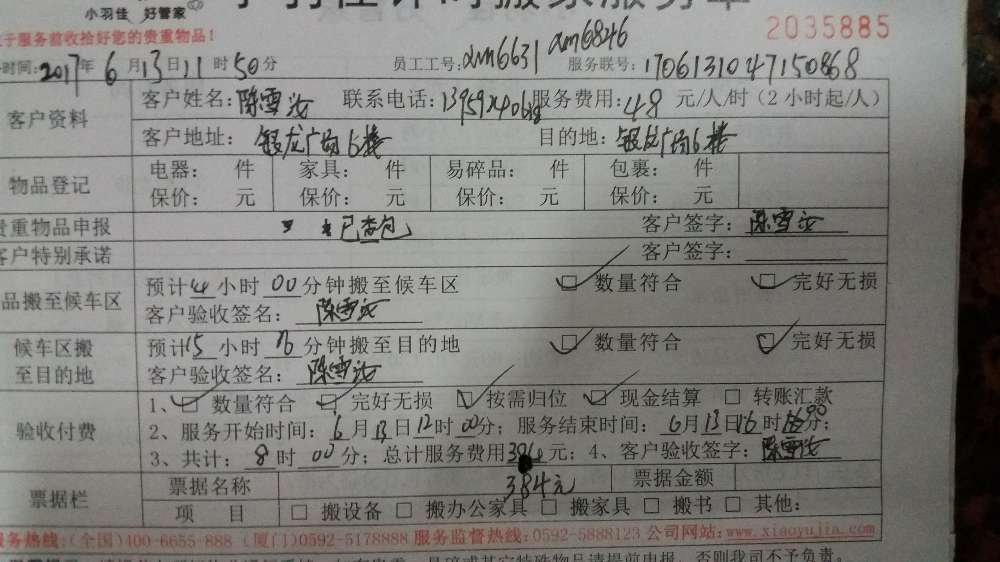 小羽佳 好管家
小羽佳计时搬家服务单
子服务监收拾好您的贵重物品!
2035885
时间:2017年6月13日11时50分 员工工号:xm6631 xm6846 服务联号:1706131047150868
客户资料
客户姓名:陈雪 联系电话:服务费用:48元/人/时(2小时起/人)
客户地址:银龙广场6楼 目的地:银龙广场6楼
物品登记
电器: 件 家具: 件 易碎品: 件 包裹: 件
保价: 元 保价: 元 保价: 元 保价: 元
贵重物品申报 已查包 客户签字:陈雪
客户特别承诺 客户签字:
品搬至候车区
预计4小时00分钟搬至候车区 数量符合 完好无损
客户验收签名:陈雪
候车区搬至目的地
预计15小时分钟搬至目的地 数量符合 完好无损
客户验收签名:陈雪
验收付费
1、数量符合 完好无损 按需归位 现金结算 转账汇款
2、服务开始时间:6月13日12时00分;服务结束时间:6月13日16时00分;
3、共计:8时00分;总计服务费用元;4、客户验收签字:陈雪
384元
票据栏
票据名称 票据金额
项 目 搬设备 搬办公家具 搬家具 搬书 其他:
服务热线:(全国)400-6655-888 (厦门)0592-5178888 服务监督热线:0592-5888123 公司网站:www.xiaoyujia.com
易碎或其它特殊物品请提前申报,否则我司不予负责。